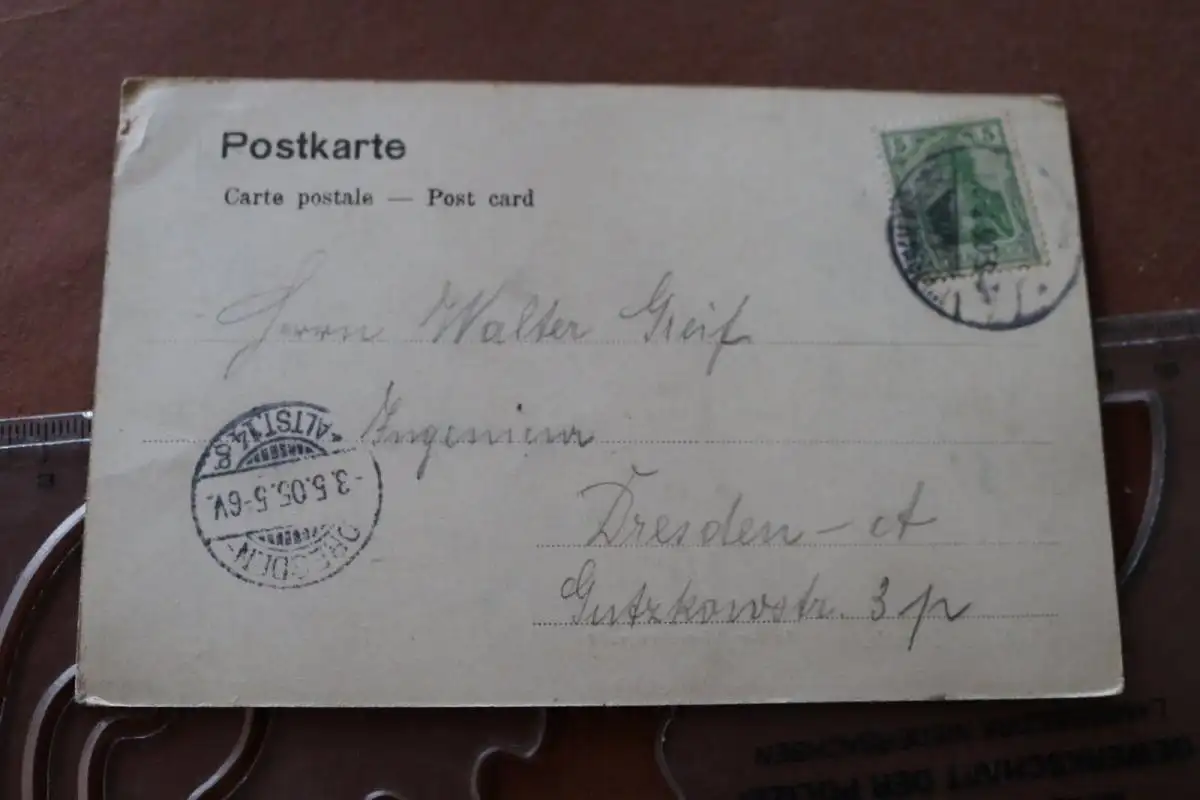 Postkarte
Carte postale — Post card
5 5
Herrn Walter Greif
Ingenieur
Dresden - A
Gutzkowstr. 3 p
DRESDEN-
3.5.05.5-6V.
*ALTST.14.
GEWERKSCHAFT DER POLIZEI